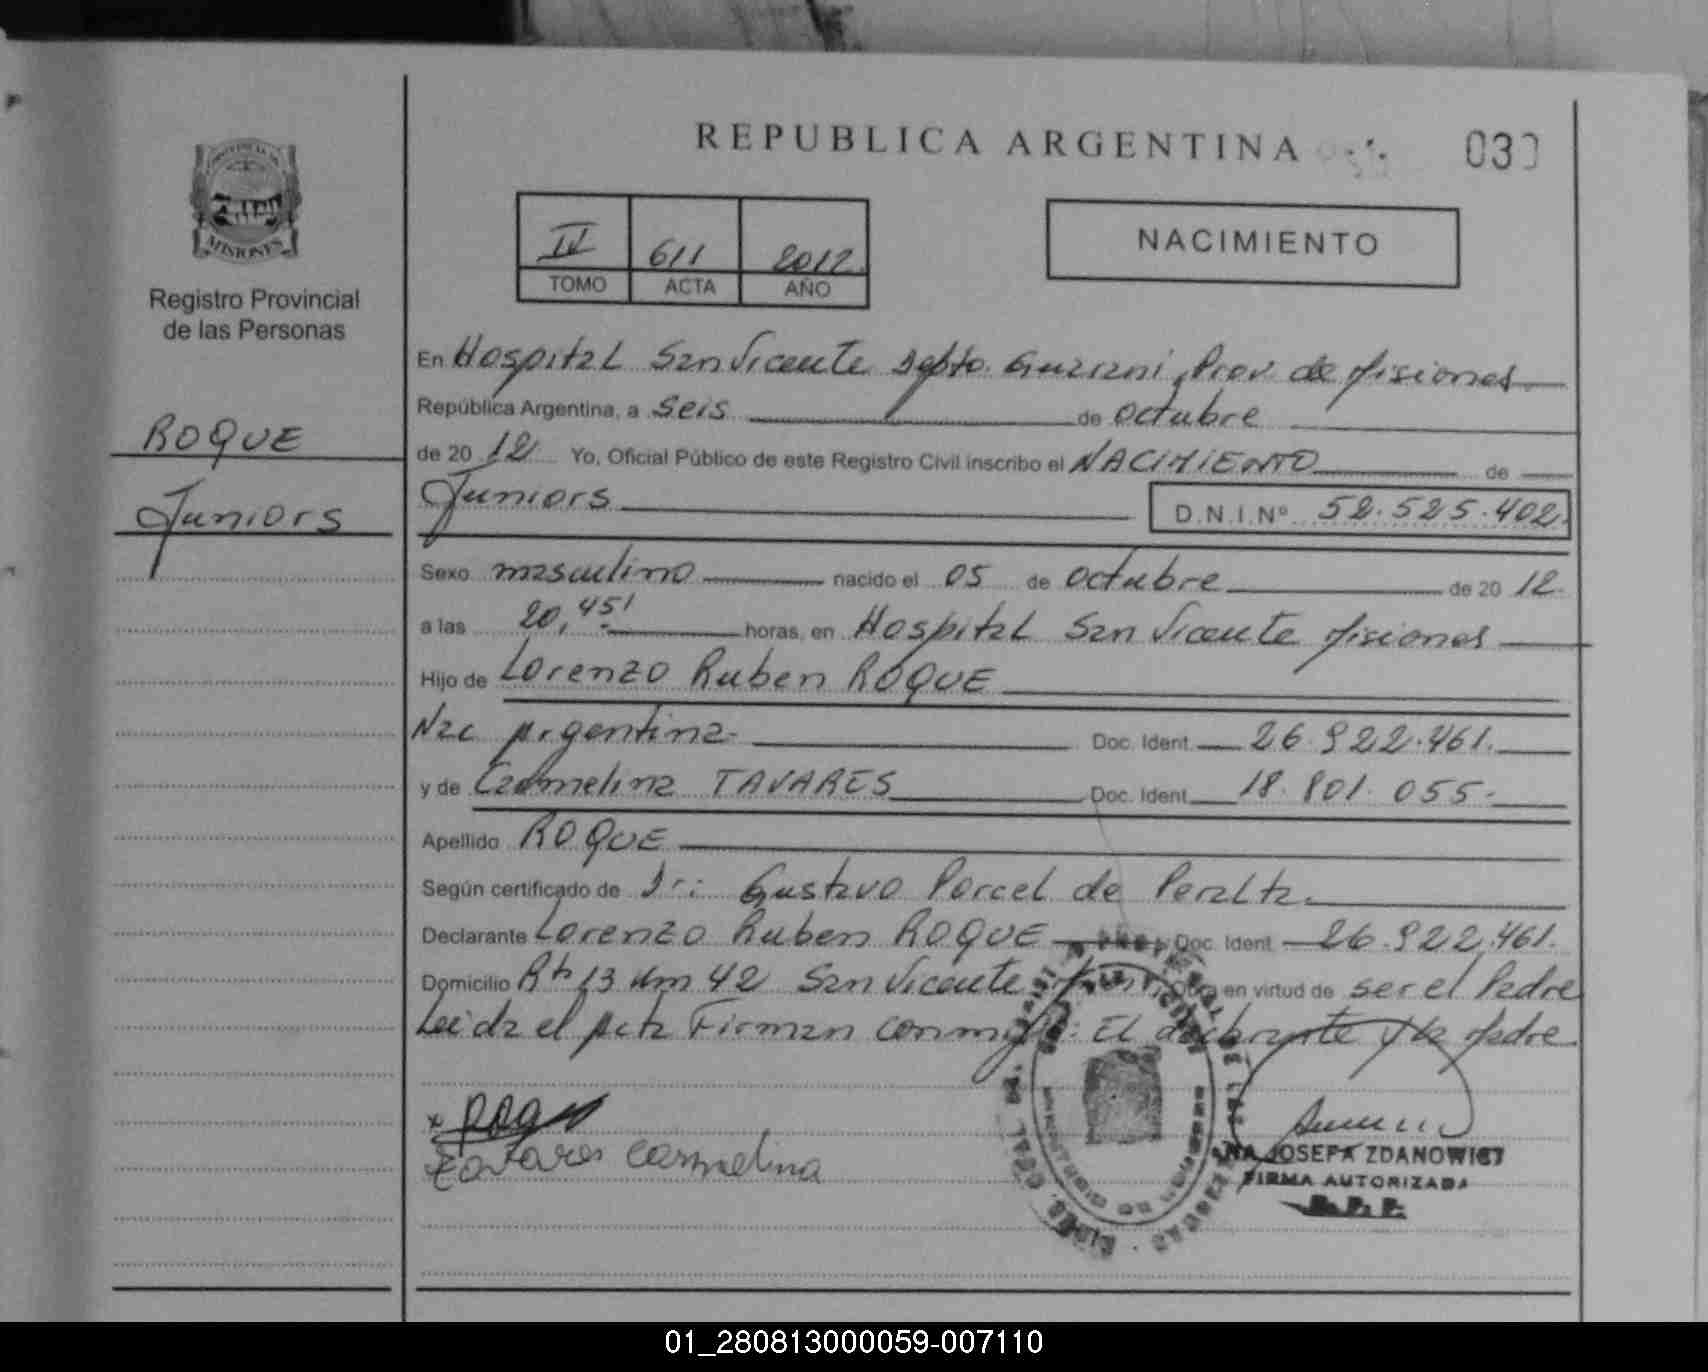 REPUBLICA ARGENTINA
PROVINCIA DE
MISIONES
Registro Provincial
de las Personas
ROQUE
Juniors
IV 611 2012
TOMO ACTA AÑO
NACIMIENTO
En Hospital San Vicente Dpto. Guarani, Prov. de Misiones
República Argentina, a seis de octubre
de 20 12 Yo, Oficial Público de este Registro Civil inscribo el NACIMIENTO de
Juniors D.N.I.Nº 52.525.402.
Sexo masculino nacido el 05 de octubre de 20 12.
a las 20,45' horas, en Hospital San Vicente Misiones
Hijo de Lorenzo Ruben ROQUE
Nac Argentina- Doc. Ident. 26.922.461.
y de Carmelina TAVARES Doc. Ident. 18.801.055-
Apellido ROQUE
Según certificado de Dr: Gustavo Porcel de Peralta.
Declarante Lorenzo Ruben ROQUE Doc. Ident. 26.922.461.
Domicilio Rta 13 Km 42 San Vicente en virtud de ser el Padre
Leida el Acta Firman conmigo: El declarante y la Madre
x
Tavares Carmelina
JOSEFA ZDANOWICZ
FIRMA AUTORIZADA
R.P.P.
01_280813000059-007110